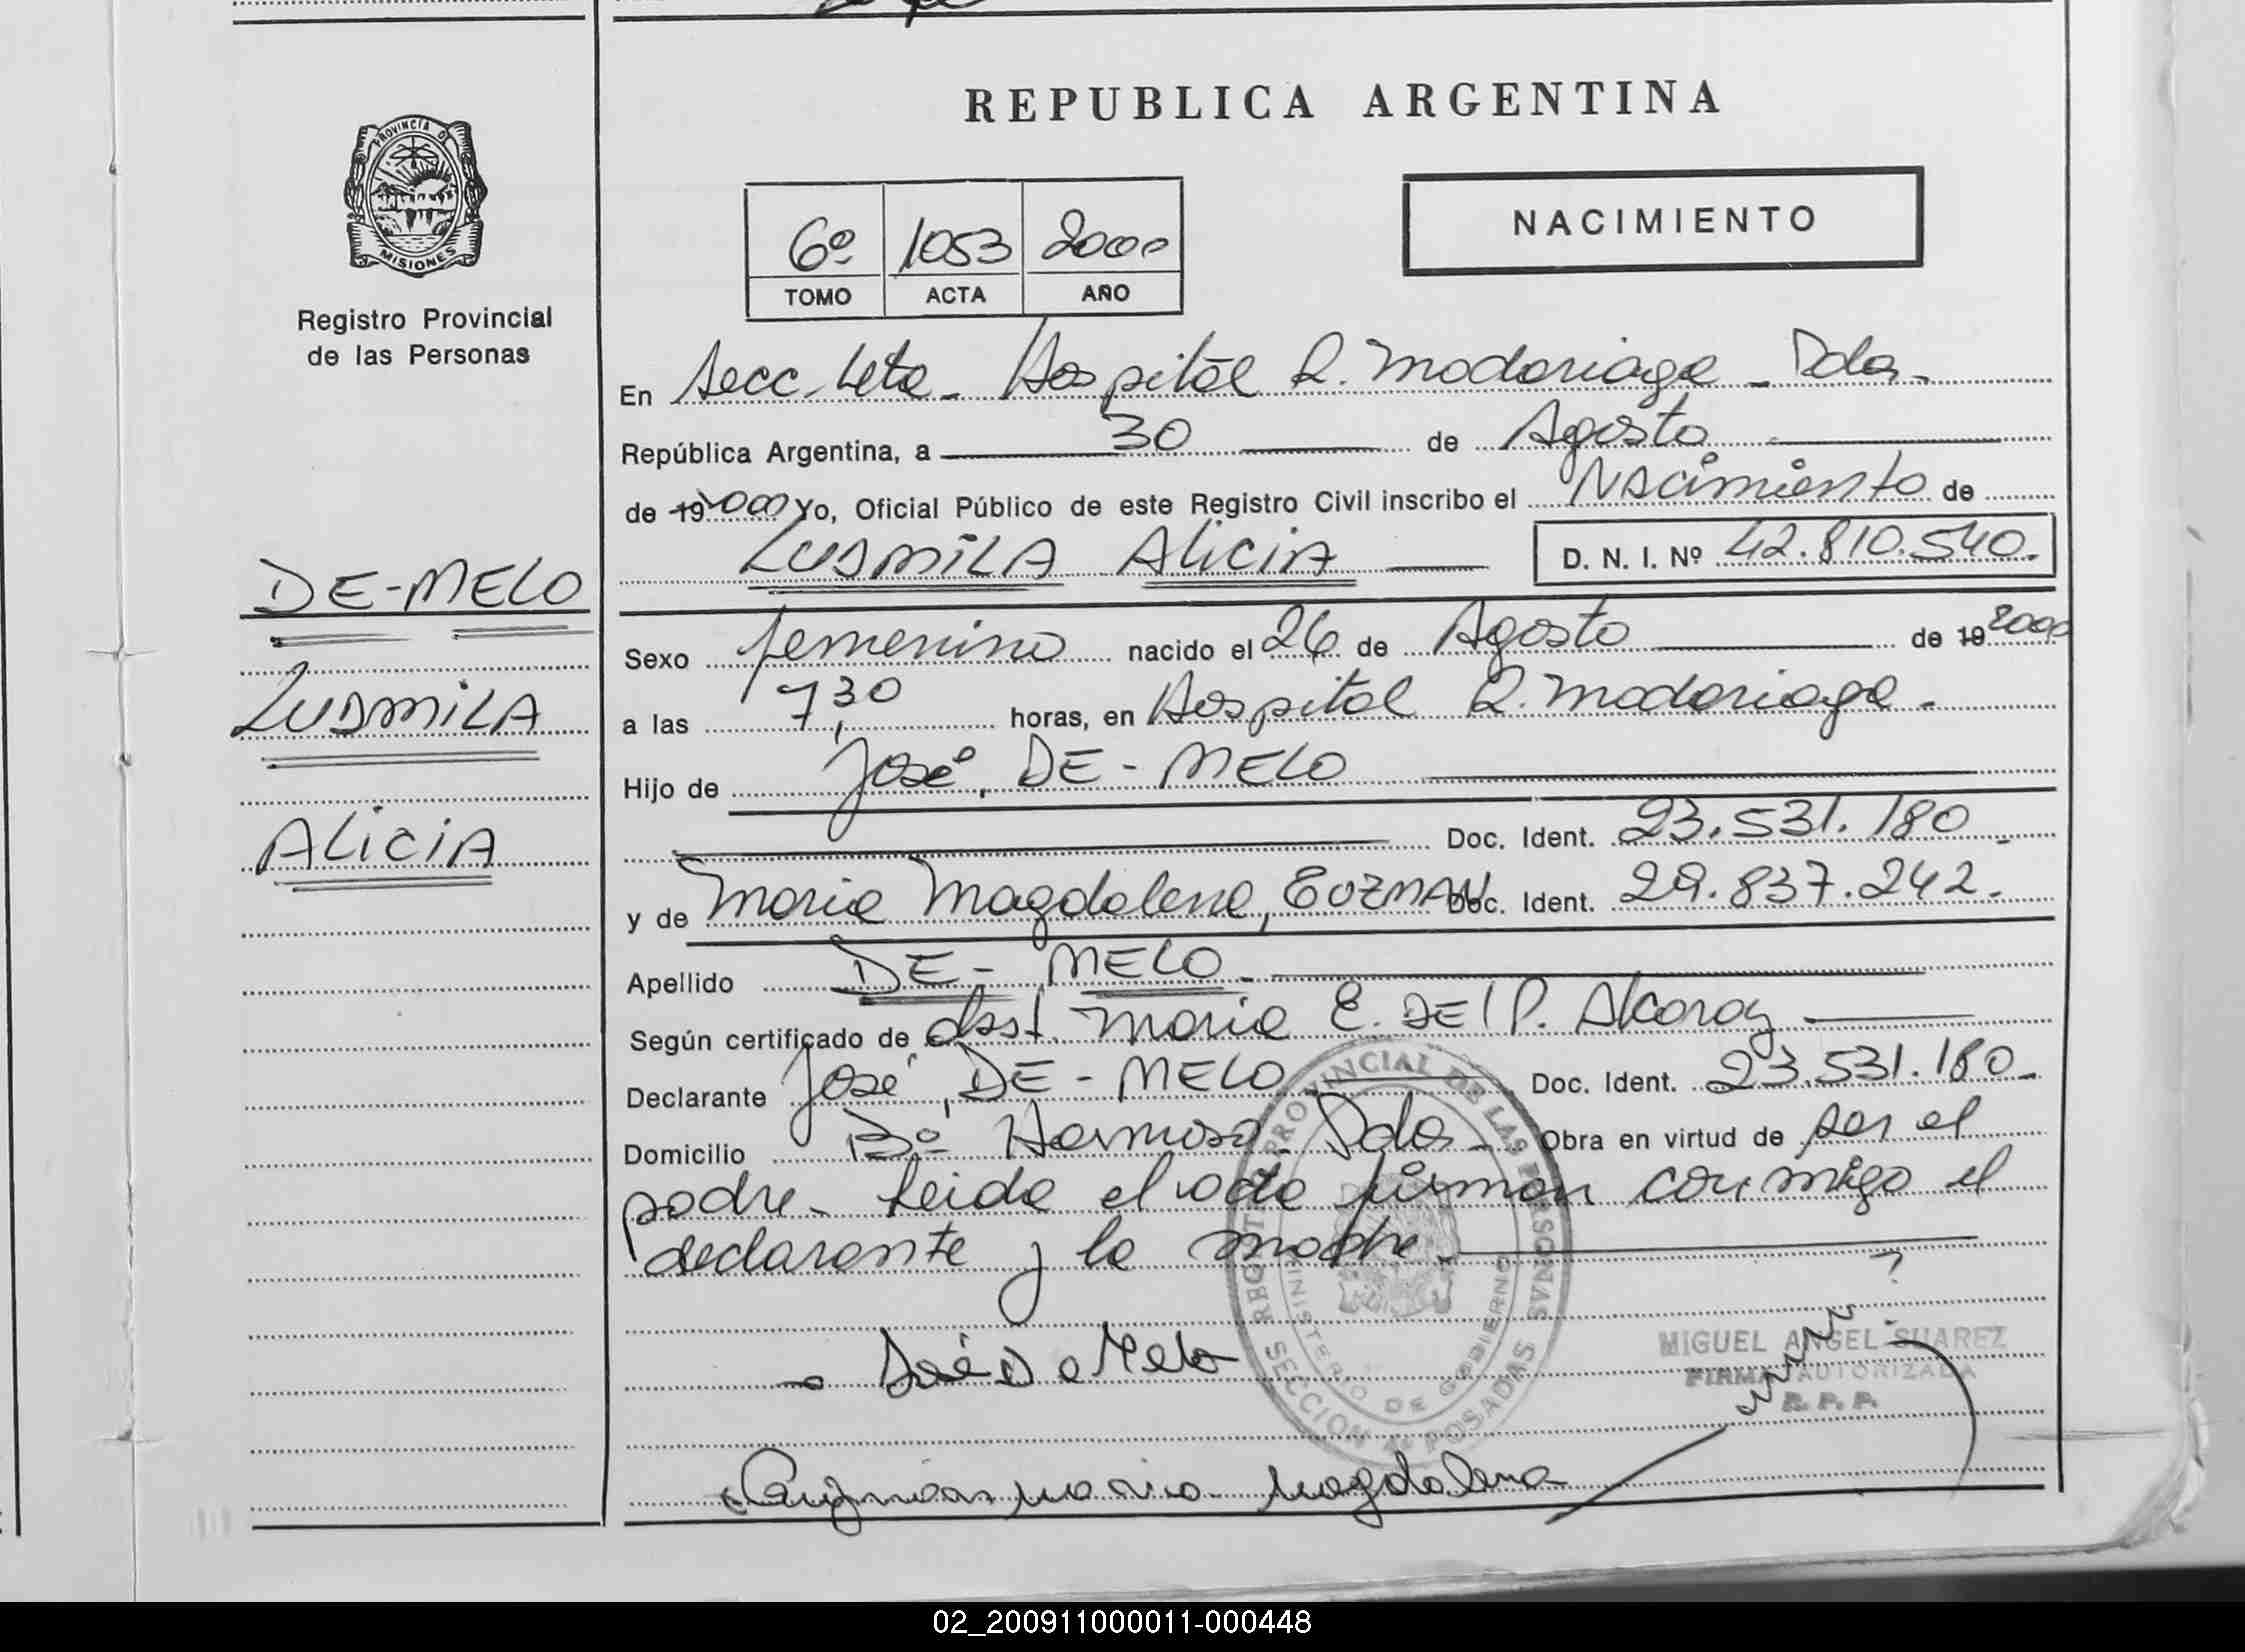 REPUBLICA ARGENTINA
PROVINCIA DE MISIONES
Registro Provincial
de las Personas
NACIMIENTO
6º 1053 2000
TOMO ACTA AÑO
En Secc. 4ta - Hospital R. Madariaga - Pdas.
República Argentina, a 30 de Agosto
de 19 2000 Yo, Oficial Público de este Registro Civil inscribo el Nacimiento de
LUDMILA ALICIA D. N. I. Nº 42.810.540.
DE-MELO
LUDMILA
ALICIA
Sexo femenino nacido el 26 de Agosto de 19 2000
a las 7,30 horas, en Hospital R. Madariaga.
Hijo de José, DE-MELO
Doc. Ident. 23.531.180
y de Maria Magdalena, GUZMAN Doc. Ident. 29.837.242.
Apellido DE-MELO
Según certificado de Obst. Maria E. DEL P. Alcaraz
Declarante José, DE-MELO Doc. Ident. 23.531.180
Domicilio Bº Hermoso Pdas. Obra en virtud de ser el
padre. Leida el acta firman conmigo el
declarante y la madre.
REGISTRO PROVINCIAL DE LAS PERSONAS
MINISTERIO DE GOBIERNO
SECCION 4ª POSADAS
José De Melo
MIGUEL ANGEL SUAREZ
FIRMA AUTORIZADA
R. P. P.
Guzman maria magdalena
02_200911000011-000448